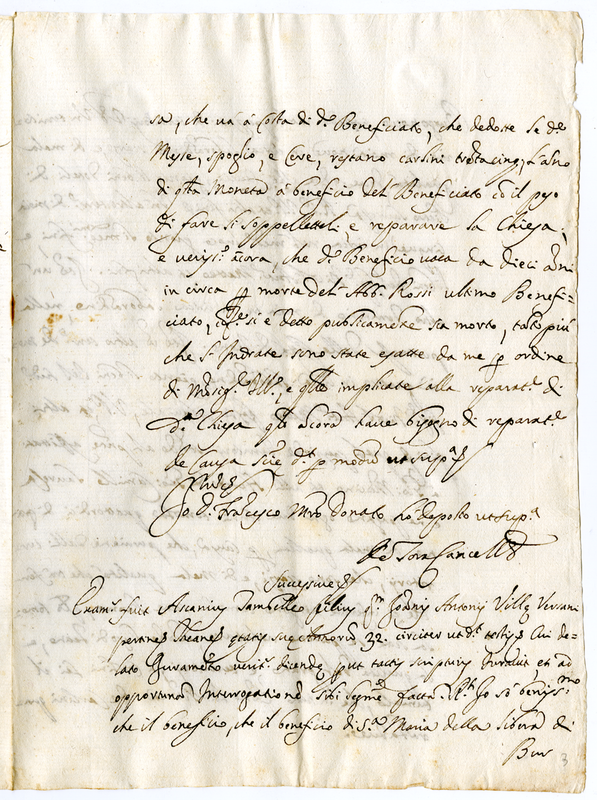 sa, che và à Costa di d.º Beneficiato, che dedotte le d.e
Messe, spoglio, e Cere, restano carlini trentacinq; l'anno
di q.sta Moneta à beneficio del Beneficiato cõ il peso
di fare li soppellettili, e reparare la Chiesa,
e veriss.º ãcora, che d.º Beneficio vaca da dieci anni
in circa p morte del Abb. Rossi ultimo Benefi=
ciato, si è detto publicamẽte sia morto, tãto più
che l'Intrate sono state esatte da me p ordine
di Mõsig.r Ill.º, e q.lle implicate alla reparat.e di
d.ª Chiesa q.le ãcora have bisogno di reparat.e
de Causa scie d.t p modũ ut sup.ª
Io D. Frãcesco Donato hò deposto ut sup.ª
Cancell.s
Successive
Exam.s fuit Ascanius Tambelleo filius q.m Joãnis Antonij Villæ
ætatis suæ Annorũ 32. circiter ut d.t testis Cui de=
lato Iuramẽto verit.s dicendæ put tactis scripturis Iuravit et ad
opportunã Interrogationẽ sibi factã R.t Io sò beniss.mo
che il beneficio, che il beneficio di S.ta Maria della libera di
Bus
3